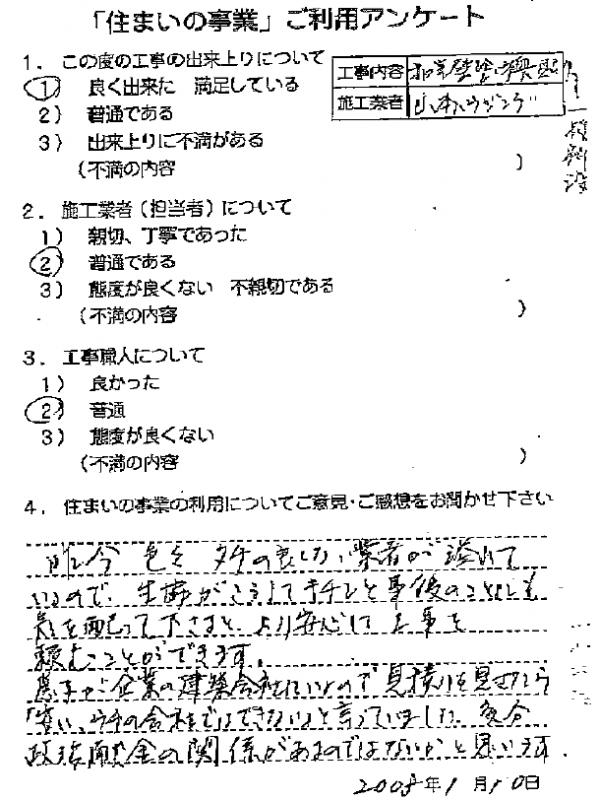 「住まいの事業」ご利用アンケート
1. この度の工事の出来上りについて
工事内容
1) 良く出来た 満足している
施工業者 山本ハウジング
2) 普通である
3) 出来上りに不満がある
(不満の内容 )
2. 施工業者(担当者)について
1) 親切、丁寧であった
2) 普通である
3) 態度が良くない 不親切である
(不満の内容 )
3. 工事職人について
1) 良かった
2) 普通
3) 態度が良くない
(不満の内容 )
4. 住まいの事業の利用についてご意見・ご感想をお聞かせ下さい
昨今 色々 タチの良くない業者が溢れて
いるので、生協がこうしてキチンと事後のことにも
気を配って下さると、より安心して工事を
頼むことができます。
息子が企業の建築会社にいるので見積りを見せたら
「安い、ウチの会社ではできない」と言っていました。多分
政治献金の関係があるのではないかと思います。
2008年1月10日